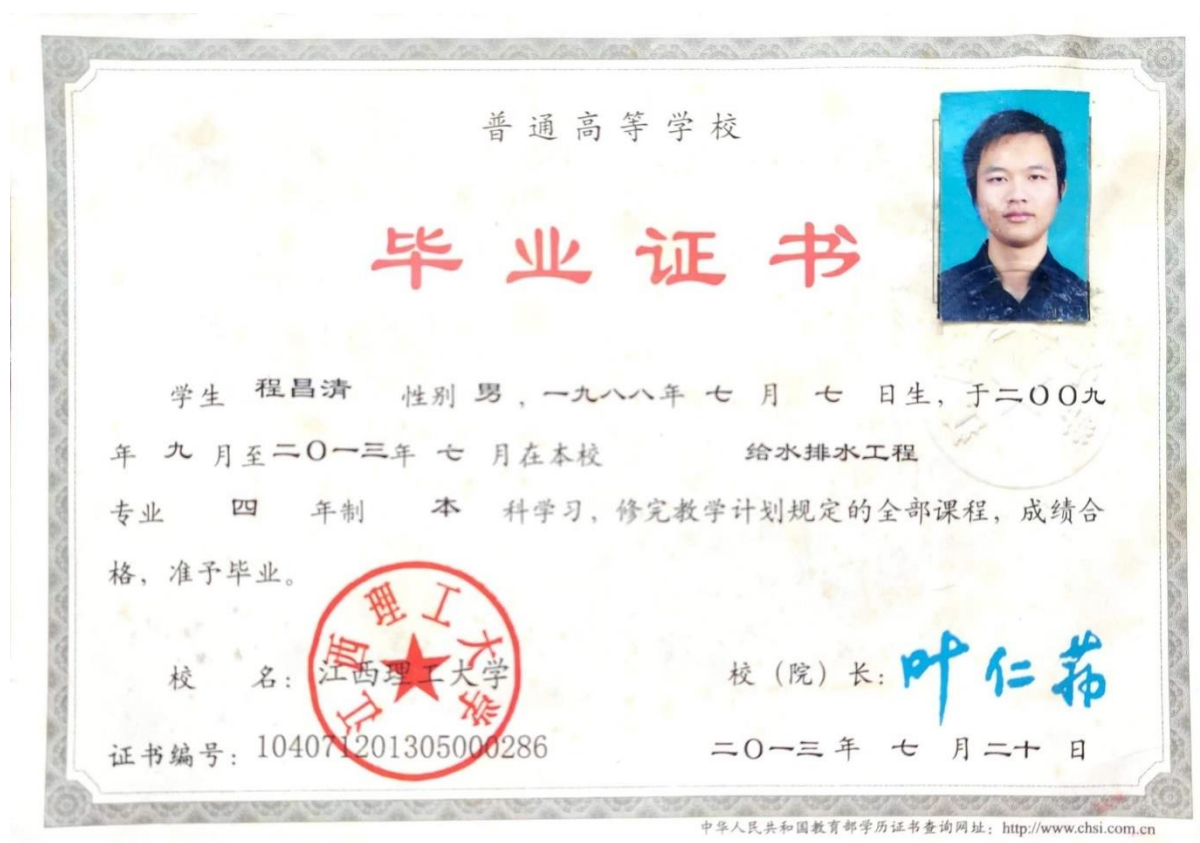 普通高等学校
毕业证书
学生 程昌清 性别 男，一九八八年 七 月 七 日生，于二〇〇九
年 九 月至二〇一三年 七 月在本校 给水排水工程
专业 四 年制 本 科学习，修完教学计划规定的全部课程，成绩合
格，准予毕业。
校 名：江西理工大学
江西理工大学
校（院）长：叶仁荪
证书编号：104071201305000286
二〇一三年 七 月二十 日
中华人民共和国教育部学历证书查询网址：http://www.chsi.com.cn